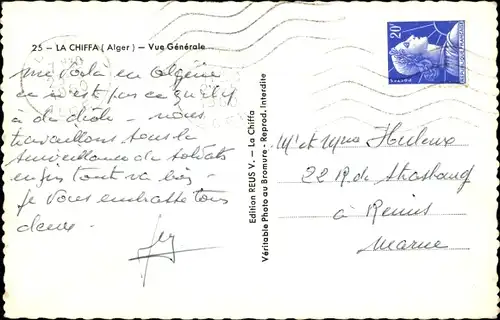 25 - LA CHIFFA ( Alger ) - Vue Générale
me voilà en Algérie
ce n'est pas ce qu'il y
a de drôle - nous
travaillons sous la
surveillance de soldats
enfin tout va bien -
je vous embrasse tous
deux -
Edition REUS V. - La Chiffa
Véritable Photo au Bromure - Reprod. Interdite
20F
Mr et Mme
22 R. de Strasbourg
à Reims
Marne